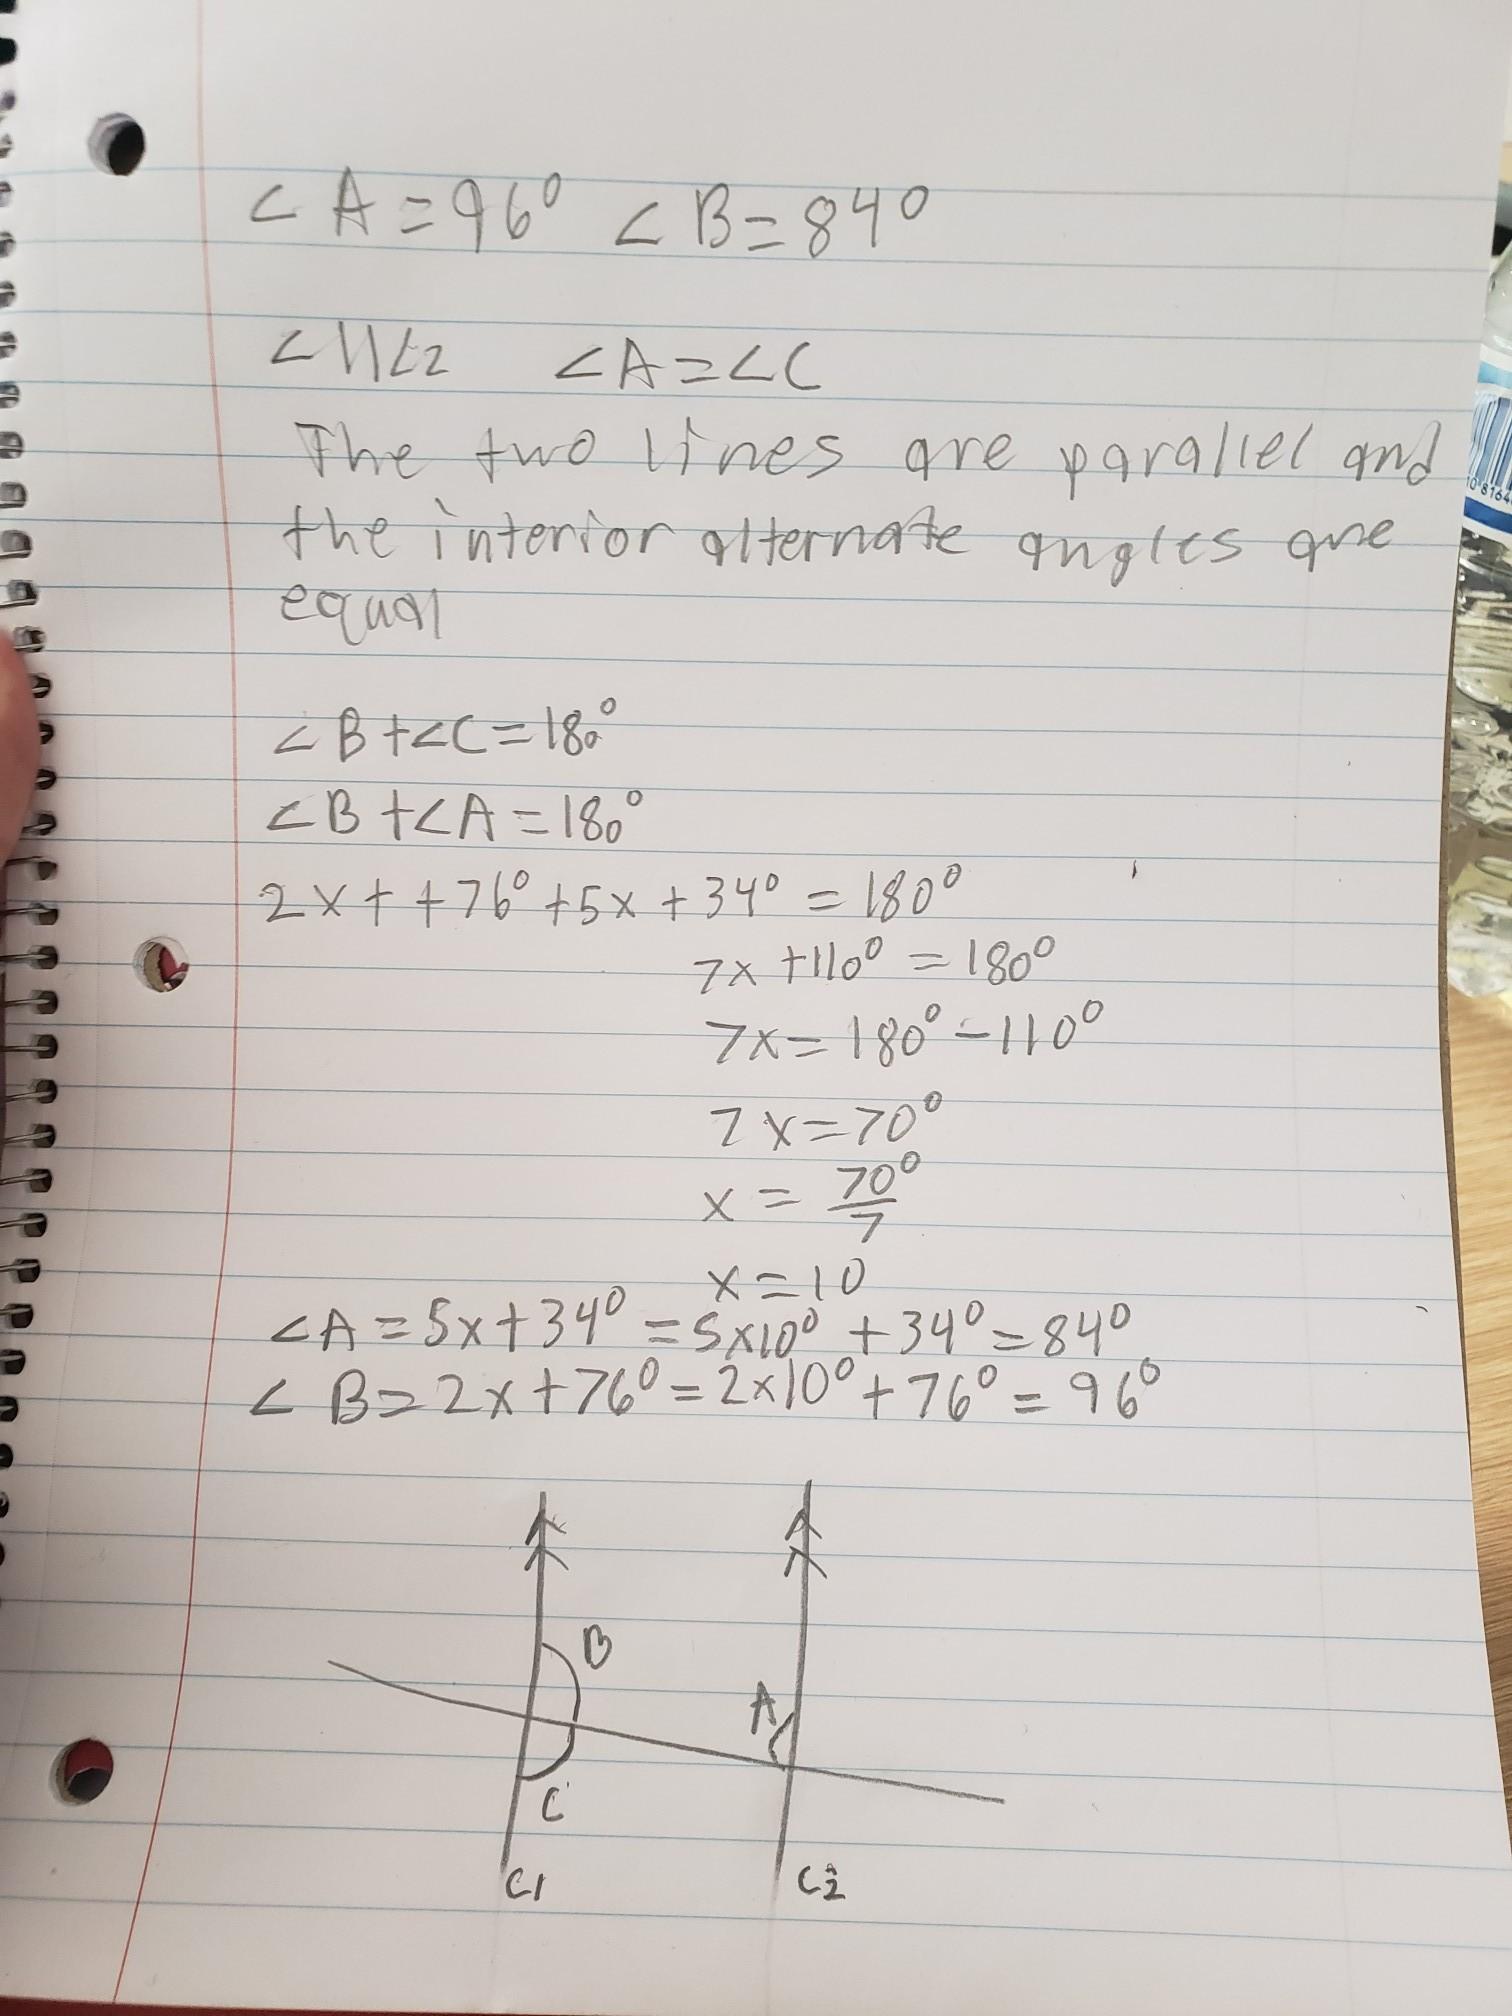 ∠A=96° ∠B=84°
∠11∠2 ∠A=∠C
The two lines are parallel and
the interior alternate angles are
equal
∠B+∠C=180°
∠B+∠A=180°
2x++76°+5x+34°=180°
7x+110°=180°
7x=180°-110°
7x=70°
x=70°/7
x=10
∠A=5x+34°=5x10°+34°=84°
∠B=2x+76°=2x10°+76°=96°
B
A
C
C1 C2